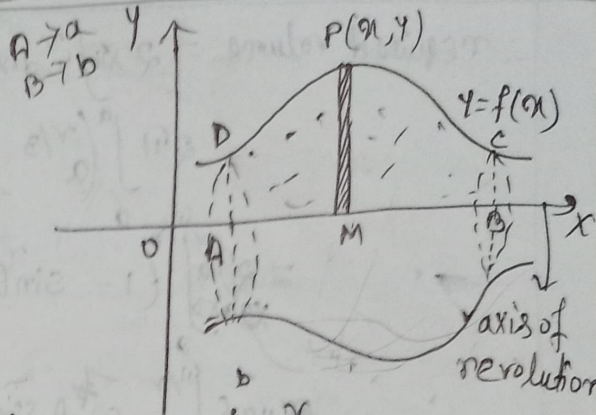 A→a
B→b
Y
P(x,y)
y=f(x)
D
C
O
A
M
B
X
axis of
revolution
b